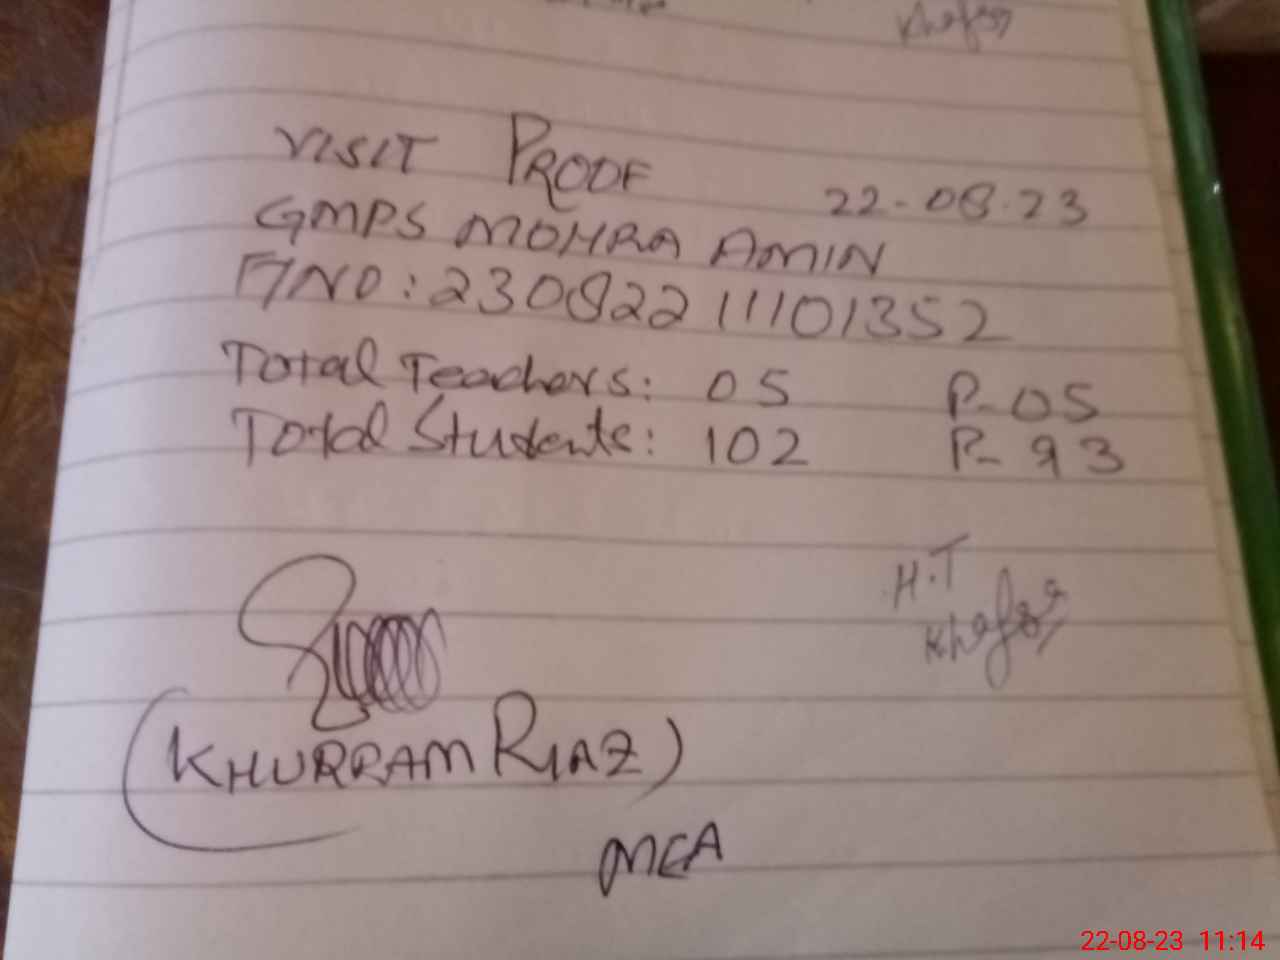 VISIT PROOF
22-08-23
GMPS MOHRA AMIN
F/NO: 23082211101352
Total Teachers: 05 P-05
Total Students: 102 P-93
H.T
(KHURRAM RIAZ)
MEA
22-08-23 11:14